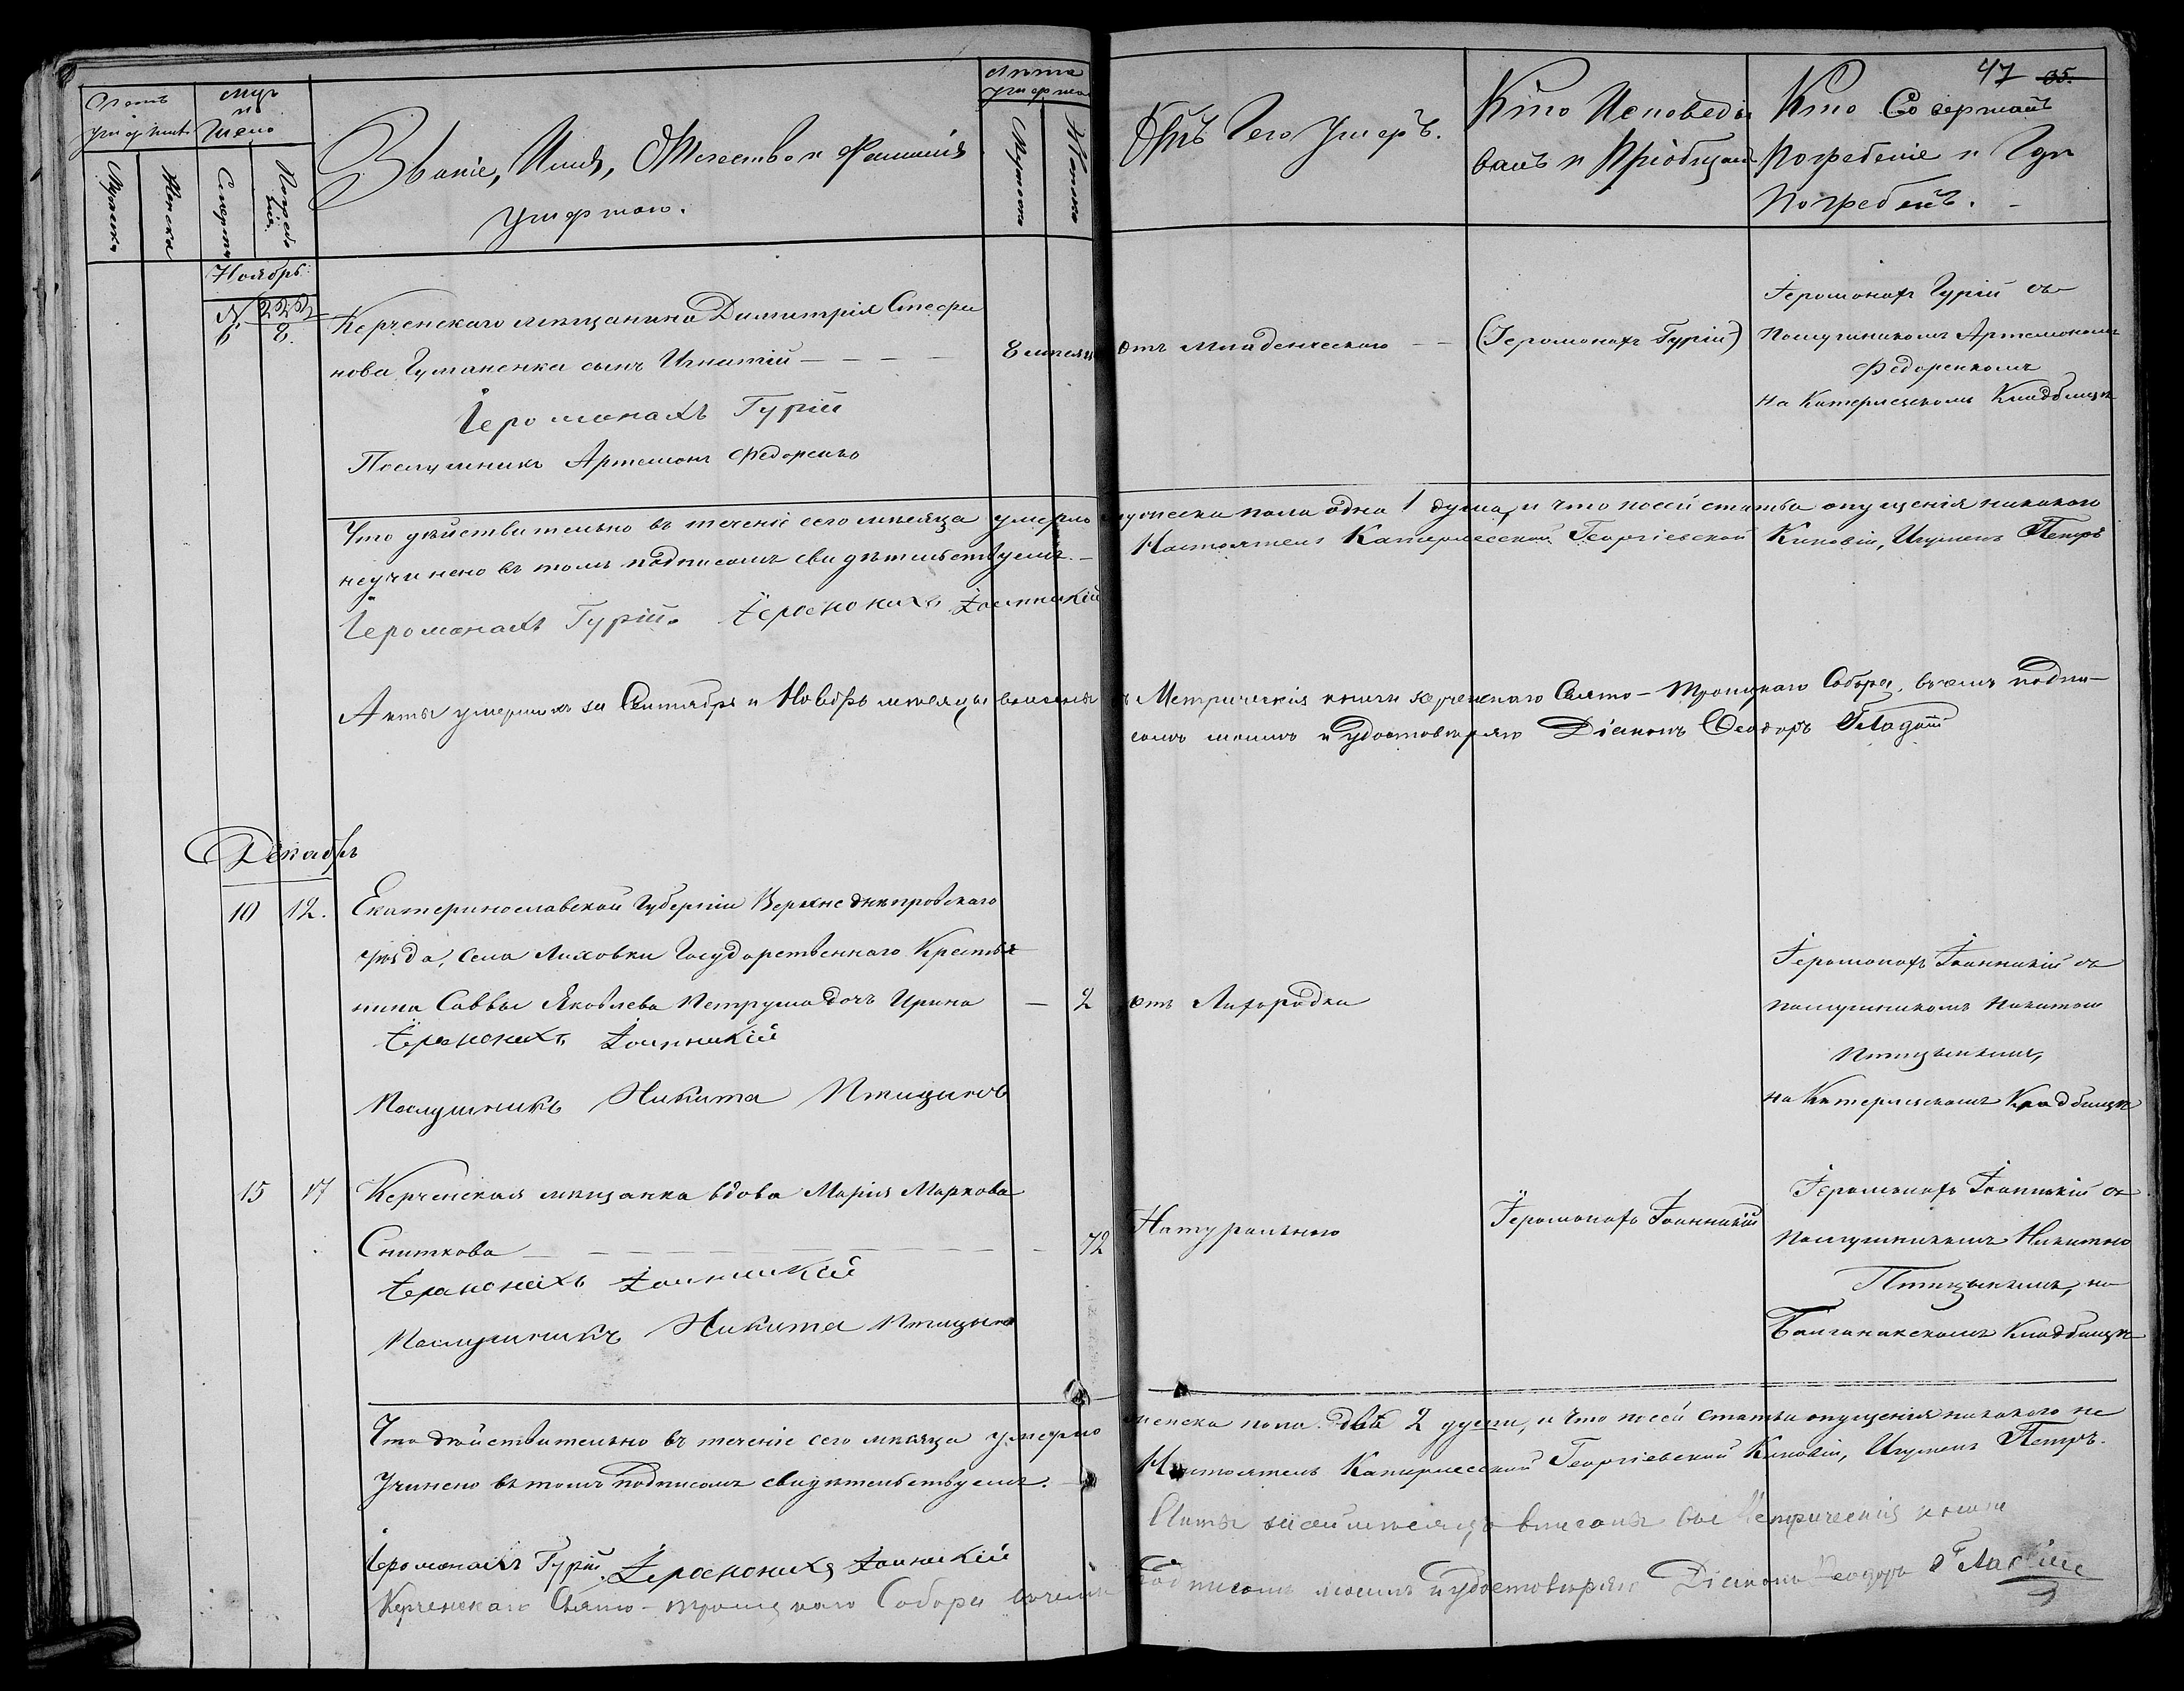 47 35.
Счетъ умершихъ
Мужеска
Женска
Мцъ и Число
Смерти
Погребенія
Званіе, Имя, Отечество и Фамилія
умершаго.
Лѣта умершаго
Мужеска
Женска
Отъ Чего Умеръ.
Кто Исповеды
валъ и Пріобщалъ
Кто Совершалъ
Погребеніе и Гдѣ
Погребенъ.
Ноябрь
6 8.
Керченскаго мѣщанина Димитрія Стефа
нова Гуманенка сынъ Игнатій
8 мѣсяц
отъ младенческаго
(Іеромонахъ Гурій)
Іеромонахъ Гурій съ
Послушникомъ Артемономъ
Федоренкомъ
на Катерлезскомъ Кладбищѣ
Іеромонахъ Гурій
Послушникъ Артемонъ Федоренко
Что дѣйствительно въ теченіе сего мѣсяца умерло мужеска пола одна 1 душа, и что по сей статьѣ опущенія никакого
неучинено въ томъ подписомъ свидѣтельствуемъ.— Настоятель Катерлесской Георгіевской Киновіи, Игуменъ Петръ
Іеромонахъ Гурій. Іеромонахъ Іоанникій
Акты умершихъ за Сентябрь и Ноябрь мѣсяцы внесены въ Метрическія книги Керченскаго Свято-Троицкаго Собора, въ чемъ подпи-
сомъ моимъ и удостовѣряю Діаконъ Феодоръ Гладкій
Декабрь
10 12.
Екатеринославской Губерніи Верхнеднѣпровскаго
уѣзда, села Лиховки Государственнаго Крестья
нина Саввы Яковлева Петруша дочь Ирина
— 2
отъ Лихорадки
Іеромонахъ Іоанникій съ
послушникомъ Никитою
Птицынымъ,
на Катерлезскомъ Кладбищѣ
Іеромонахъ Іоанникій
Послушникъ Никита Птицынъ
15 17
Керченская мѣщанка вдова Марія Маркова
Сниткова
72
Натуральною
Іеромонахъ Іоанникій
Іеромонахъ Іоанникій съ
Послушникомъ Никитою
Птицынымъ, на
Булганакскомъ Кладбищѣ
Іеромонахъ Іоанникій
Послушникъ Никита Птицынъ
Что дѣйствительно въ теченіе сего мѣсяца умерло женска пола двѣ 2 души, и что по сей статьѣ опущенія никакого не
Учинено въ томъ подписомъ свидѣтельствуемъ. Настоятель Катерлесской Георгіевской Киновіи, Игуменъ Петръ.
Іеромонахъ Гурій, Іеромонахъ Іоанникій
Акты за сей мѣсяцъ внесены въ Метрическія книги
Керченскаго Свято-Троицкаго Собора въ чемъ подписомъ моимъ и удостовѣряю Діаконъ Феодоръ Гладкій